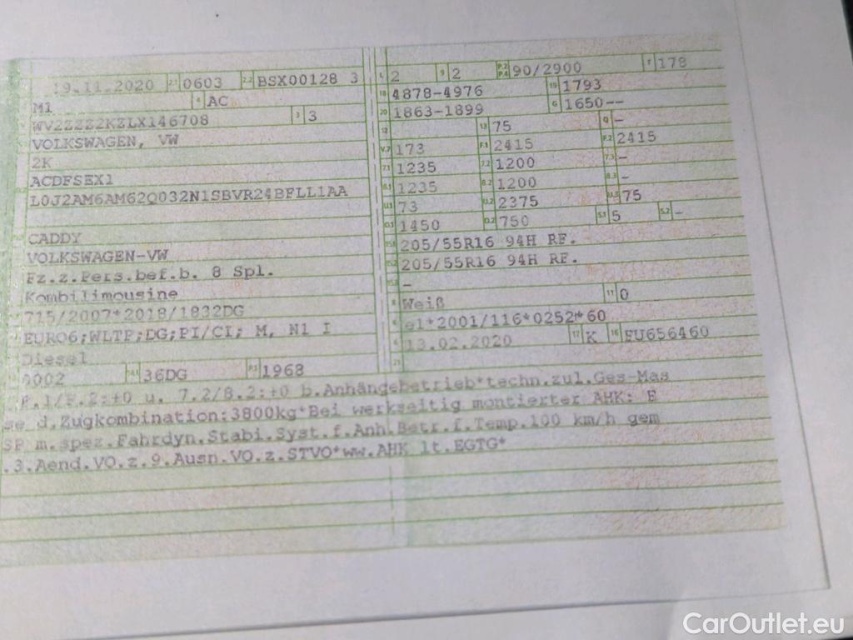 19.11.2020 2.1 0603 2.2 BSX00128 3
M1 AC
WV2ZZZ2KZLX146708 3
VOLKSWAGEN, VW
2K
ACDFSEX1
L0J2AM6AM62Q032N1SBVR24BFLL1AA
CADDY
VOLKSWAGEN-VW
Fz.z.Pers.bef.b. 8 Spl.
Kombilimousine
715/2007*2018/1832DG
EURO6;WLTP;DG;PI/CI; M, N1 I
Diesel
0002 36DG 1968
2 2 90/2900 178
4878-4976 1793
1863-1899 1650--
75 -
173 2415 2415
1235 1200 -
1235 1200 -
73 2375 75
1450 750 5 -
205/55R16 94H RF.
205/55R16 94H RF.
-
Weiß 0
e1*2001/116*0252*60
13.02.2020 K FU656460
F.1/F.2:+0 u. 7.2/8.2:+0 b.Anhängebetrieb*techn.zul.Ges-Mas
se d.Zugkombination:3800kg*Bei werkseitig montierter AHK: E
SP m.spez.Fahrdyn.Stabi.Syst.f.Anh.Betr.f.Temp.100 km/h gem
.3.Aend.VO.z.9.Ausn.VO.z.STVO*ww.AHK lt.EGTG*
CarOutlet.eu